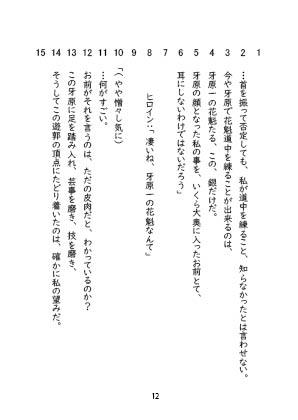 1
2 …首を振って否定しても、私が道中を練ること、知らなかったとは言わせない。
3 今や牙原で花魁道中を練ることが出来るのは、
4 牙原一の花魁たる、この、銀だけだ。
5 牙原の顔となった私の事を、いくら大奥に入ったお前とて、
6 耳にしないわけではないだろう」
7
8 ヒロイン「凄いね、牙原一の花魁なんて」
9
10 「(やや憎々し気に)
11 …何がすごい。
12 お前がそれを言うのは、ただの皮肉だと、わかっているのか?
13 この牙原に足を踏み入れ、芸事を磨き、技を磨き、
14 そうしてこの遊郭の頂点にたどり着いたのは、確かに私の望みだ。
15
12